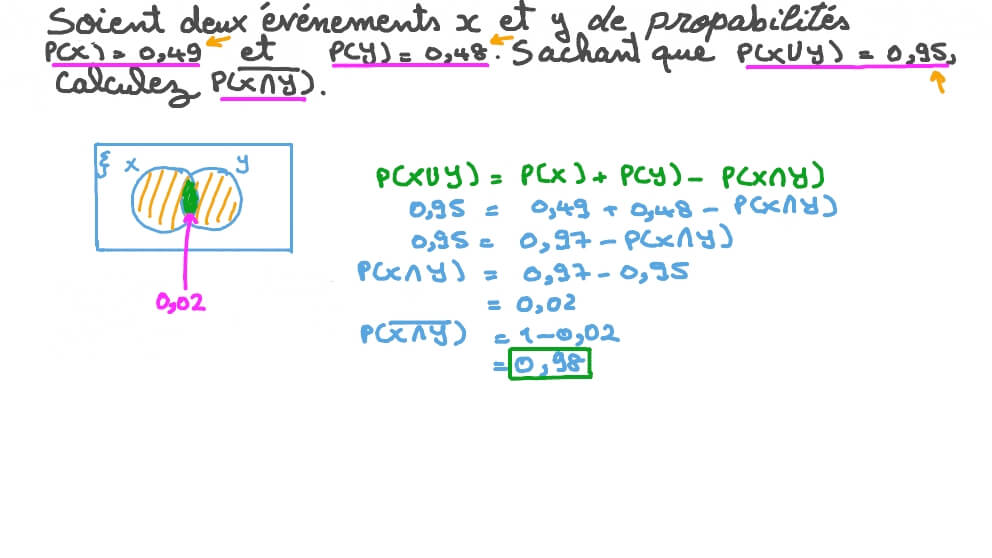 Soient deux événements x et y de propabilités
P(x) = 0,49 et P(y) = 0,48. Sachant que P(x∪y) = 0,95,
Calculez P(\overline{x∩y}).
ξ x y
0,02
P(x∪y) = P(x) + P(y) - P(x∩y)
0,95 = 0,49 + 0,48 - P(x∩y)
0,95 = 0,97 - P(x∩y)
P(x∩y) = 0,97 - 0,95
= 0,02
P(\overline{x∩y}) = 1 - 0,02
= 0,98